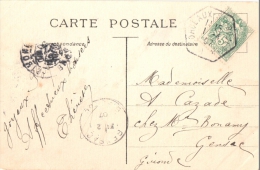 CARTE POSTALE
Correspondance
Adresse du destinataire
Joyeux
Affectueux
Thérèse
Mademoiselle
A Cazade
chez Mr Bonamy
Gensac
Gironde